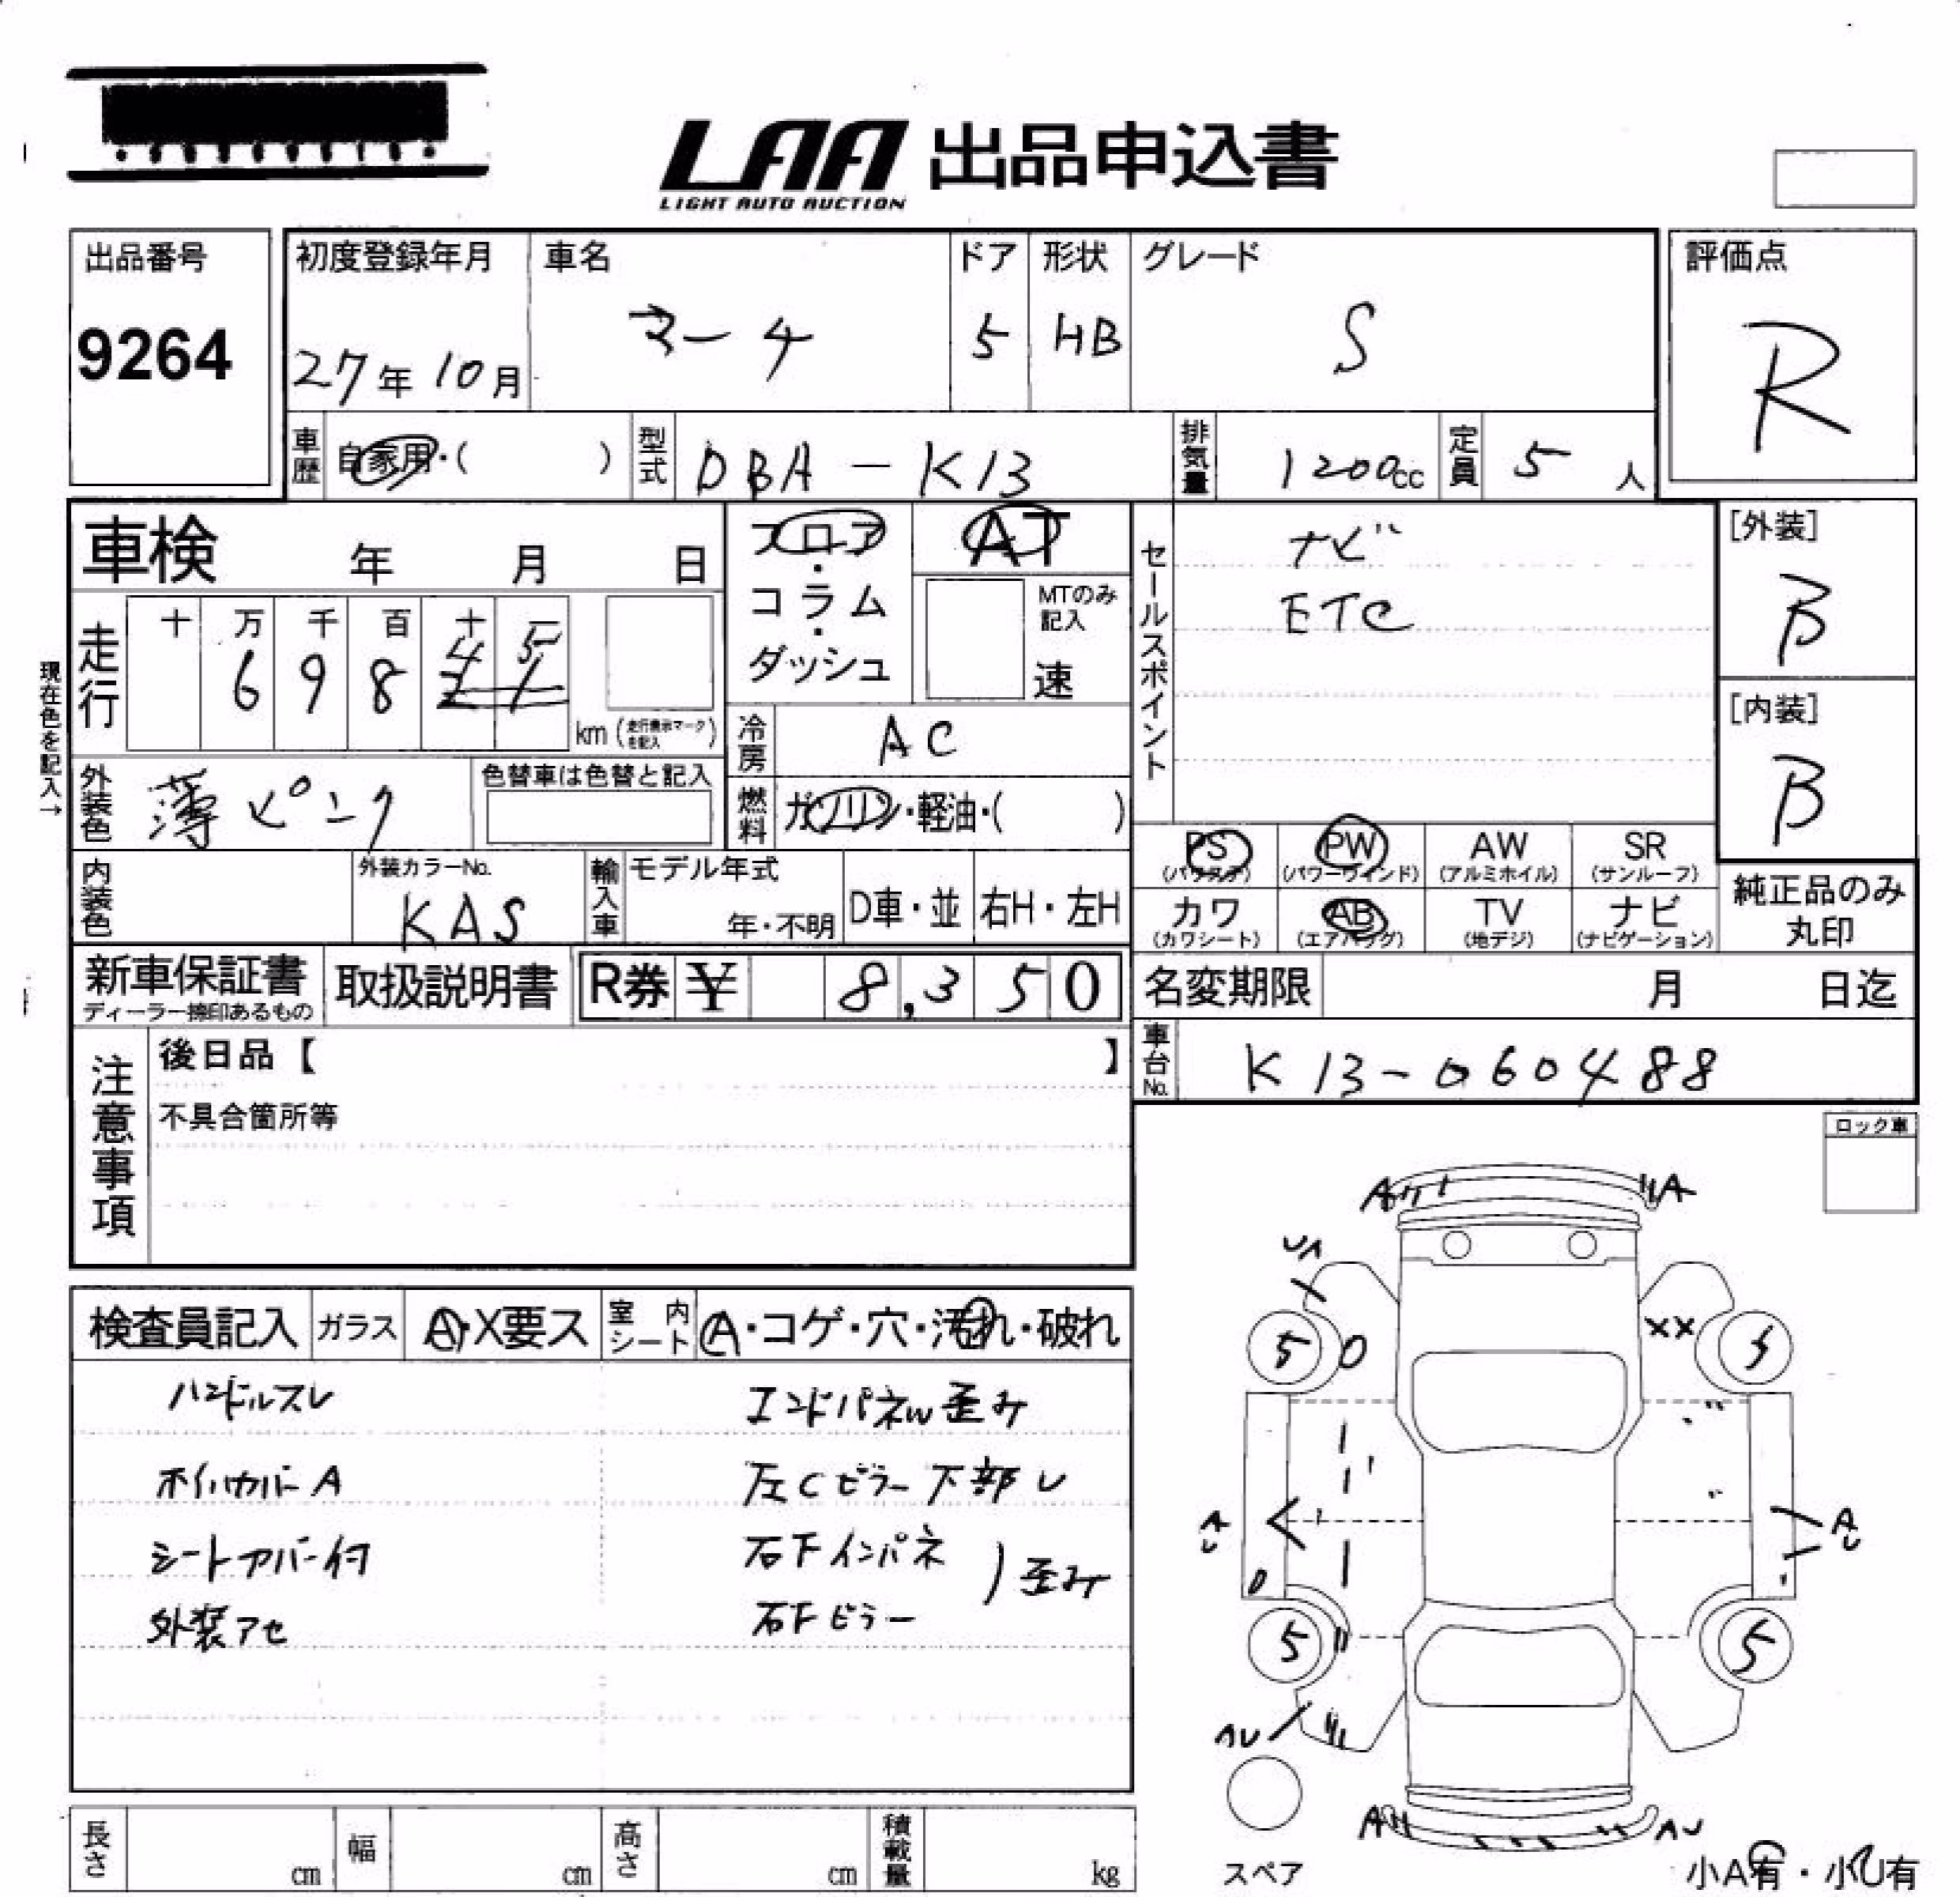 LAA 出品申込書
LIGHT AUTO AUCTION
出品番号
9264
初度登録年月
27年10月
車名
マーチ
ドア
5
形状
HB
グレード
S
評価点
R
車歴 自家用・( )
型式 DBA-K13
排気量 1200cc
定員 5人
車検 年 月 日
フロア・コラム・ダッシュ
AT
MTのみ記入
速
セールスポイント
ナビ
ETC
[外装]
B
[内装]
B
現在色を記入→
走行
十 万 千 百 十 一
6 9 8 4 5
km (走行表示マークを記入)
冷房 AC
外装色 薄ピンク
色替車は色替と記入
燃料 ガソリン・軽油・( )
PS (パワステ) PW (パワーウインド) AW (アルミホイル) SR (サンルーフ)
カワ (カワシート) AB (エアバッグ) TV (地デジ) ナビ (ナビゲーション)
純正品のみ丸印
内装色
外装カラーNo.
KAS
輸入車
モデル年式
年・不明
D車・並
右H・左H
新車保証書
ディーラー捺印あるもの
取扱説明書
R券 ¥ 8,350
名変期限 月 日迄
車台No. K13-060488
注意事項
後日品【 】
不具合箇所等
ロック車
検査員記入
ガラス A・X要ス
室内シート A・コゲ・穴・汚れ・破れ
ハンドルスレ
エンドパネル歪み
ホイルカバーA
左Cピラー下部U
シートカバー付
右Fインパネ
歪み
外装アセ
右Fピラー
A
A
UA
5
5
XX
AU
AU
5
5
AU
A
AU
スペア
小A有・小U有
長さ cm
幅 cm
高さ cm
積載量 kg